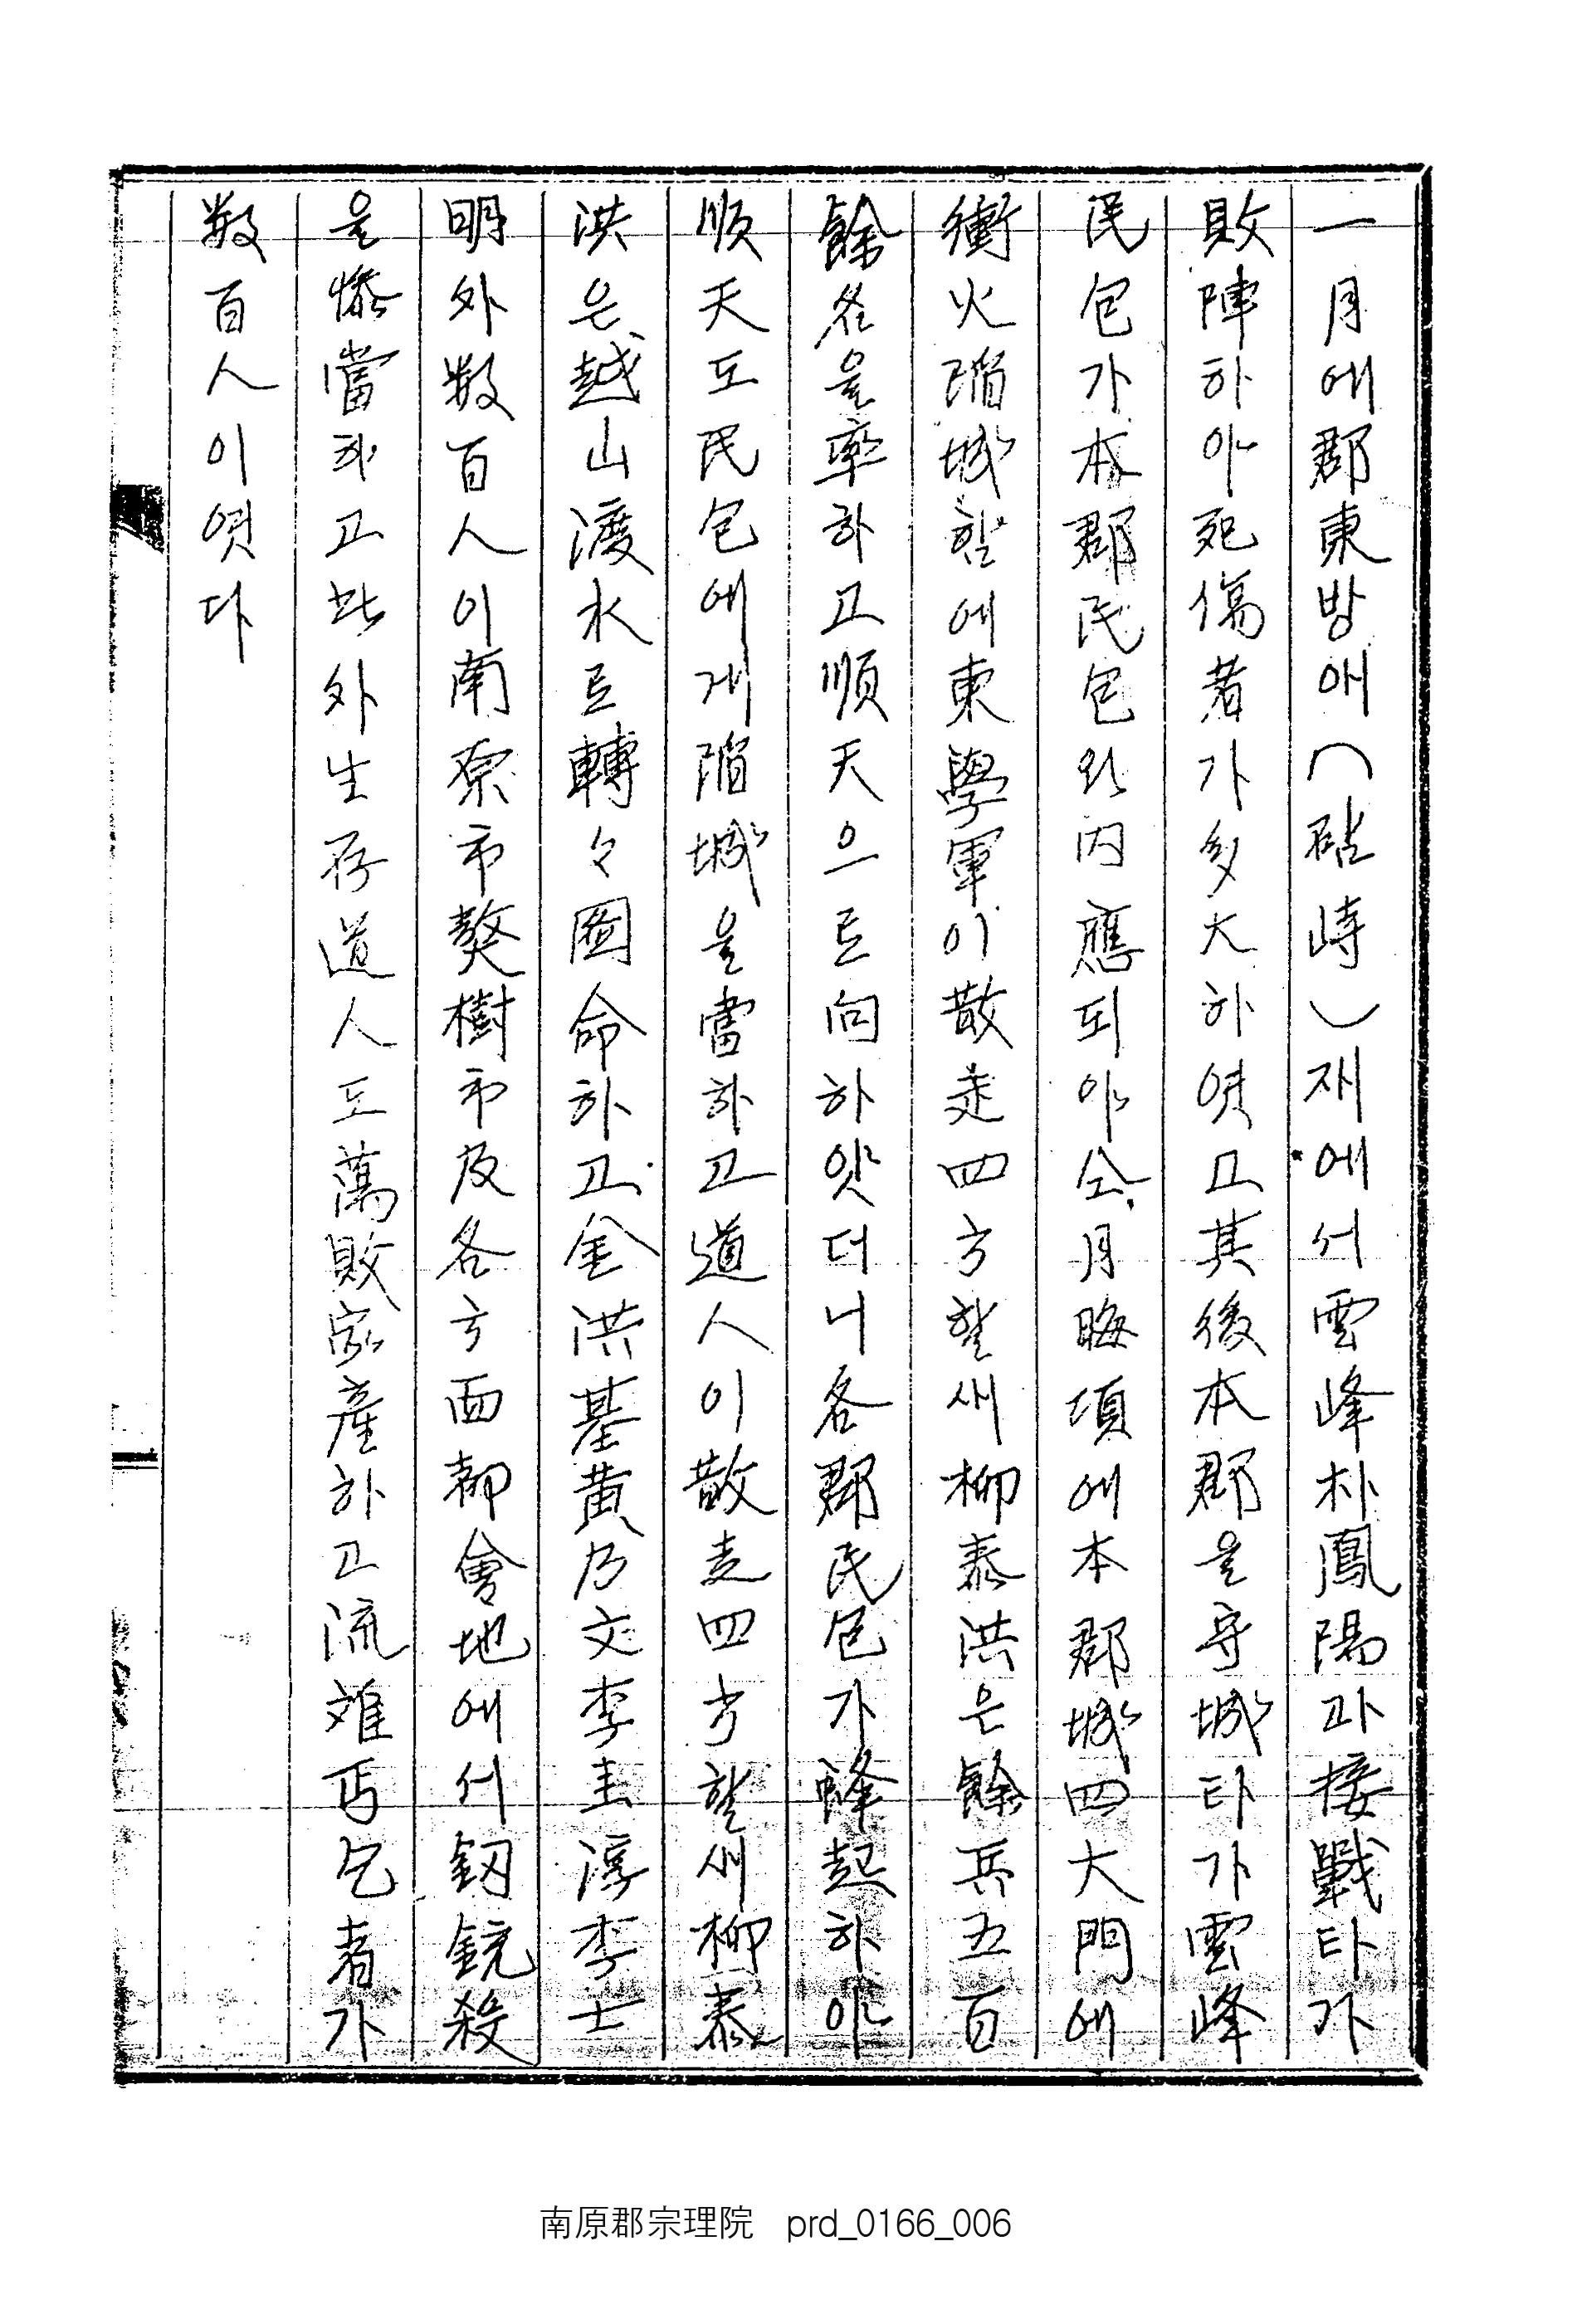 一月에郡東방애(砧峙)재에서雲峰朴鳳陽과接戰타가
敗陣하야死傷者가多大하엿고其後本郡을守城타가雲峰
民包가本郡民包와內應되야仝月晦頃에本郡城四大門에
衝火陷城함에東學軍이散走四方할새柳泰洪은餘兵五百
餘名을率하고順天으로向하얏더니各郡民包가蜂起하야
順天도民包에게陷城을當하고道人이散走四方할새柳泰
洪은越山渡水로轉々圖命하고金洪基黃乃文李圭淳李士
明外數百人이南原市獒樹市及各方面都會地에서釼銃殺
을慘當하고此外生存道人도蕩敗家產하고流離丐乞者가
數百人이엿다
南原郡宗理院 prd_0166_006